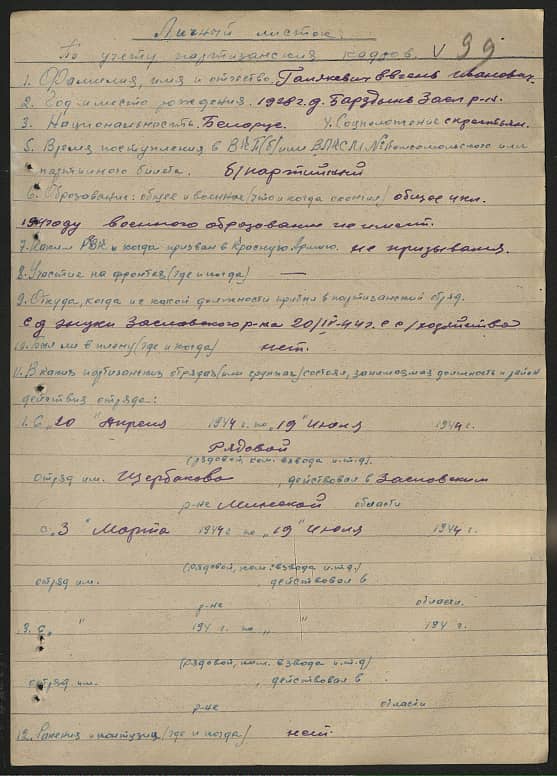 Личный листок
По учету партизанских кадров. V 99
1. Фамилия, имя и отчество. Галякевич Евгень Иванович.
2. Год и место рождения. 1928 г. д. Барздынь Засл р-н.
3. Национальность. Белорус. 4. Соцположение с крестьян.
5. Время поступления в ВКП(б) или ВЛКСМ № Комсомольского или
партийного билета. б/партийный
6. Образование: общее и военное (что и когда окончил) общее 4 кл.
1941 году военного образования не имеет.
7. Каким РВК и когда призван в Красную Армию. не призывался.
8. Участие на фронтах (где и когда) —
9. Откуда, когда и с какой должности прибыл в партизанский отряд.
с д. Знуки Заславского р-на 20/IV-44 г. с с/хозяйства
10. Был ли в плену (где и когда) нет.
11. В каких партизанских отрядах (или группах) состоял, занимаемая должность и район
действия отряда:
1. С „20" Апреля 1944 г. по „19" Июня 1944 г.
Рядовой
(рядовой, ком. взвода и.т.д).
отряд им. Щербакова, действовал в Заславским
р-не Минской области
с „3" Марта 1944 г по „19" Июля 1944 г.
(рядовой, ком. взвода и.т.д.)
отряд им. , действовал в
р-не области.
3. С „ " 194 г. по „ " 194 г.
(рядовой, ком. взвода и.т.д)
отряд им. , действовал в
р-не области
12. Ранения и контузии (где и когда) нет.